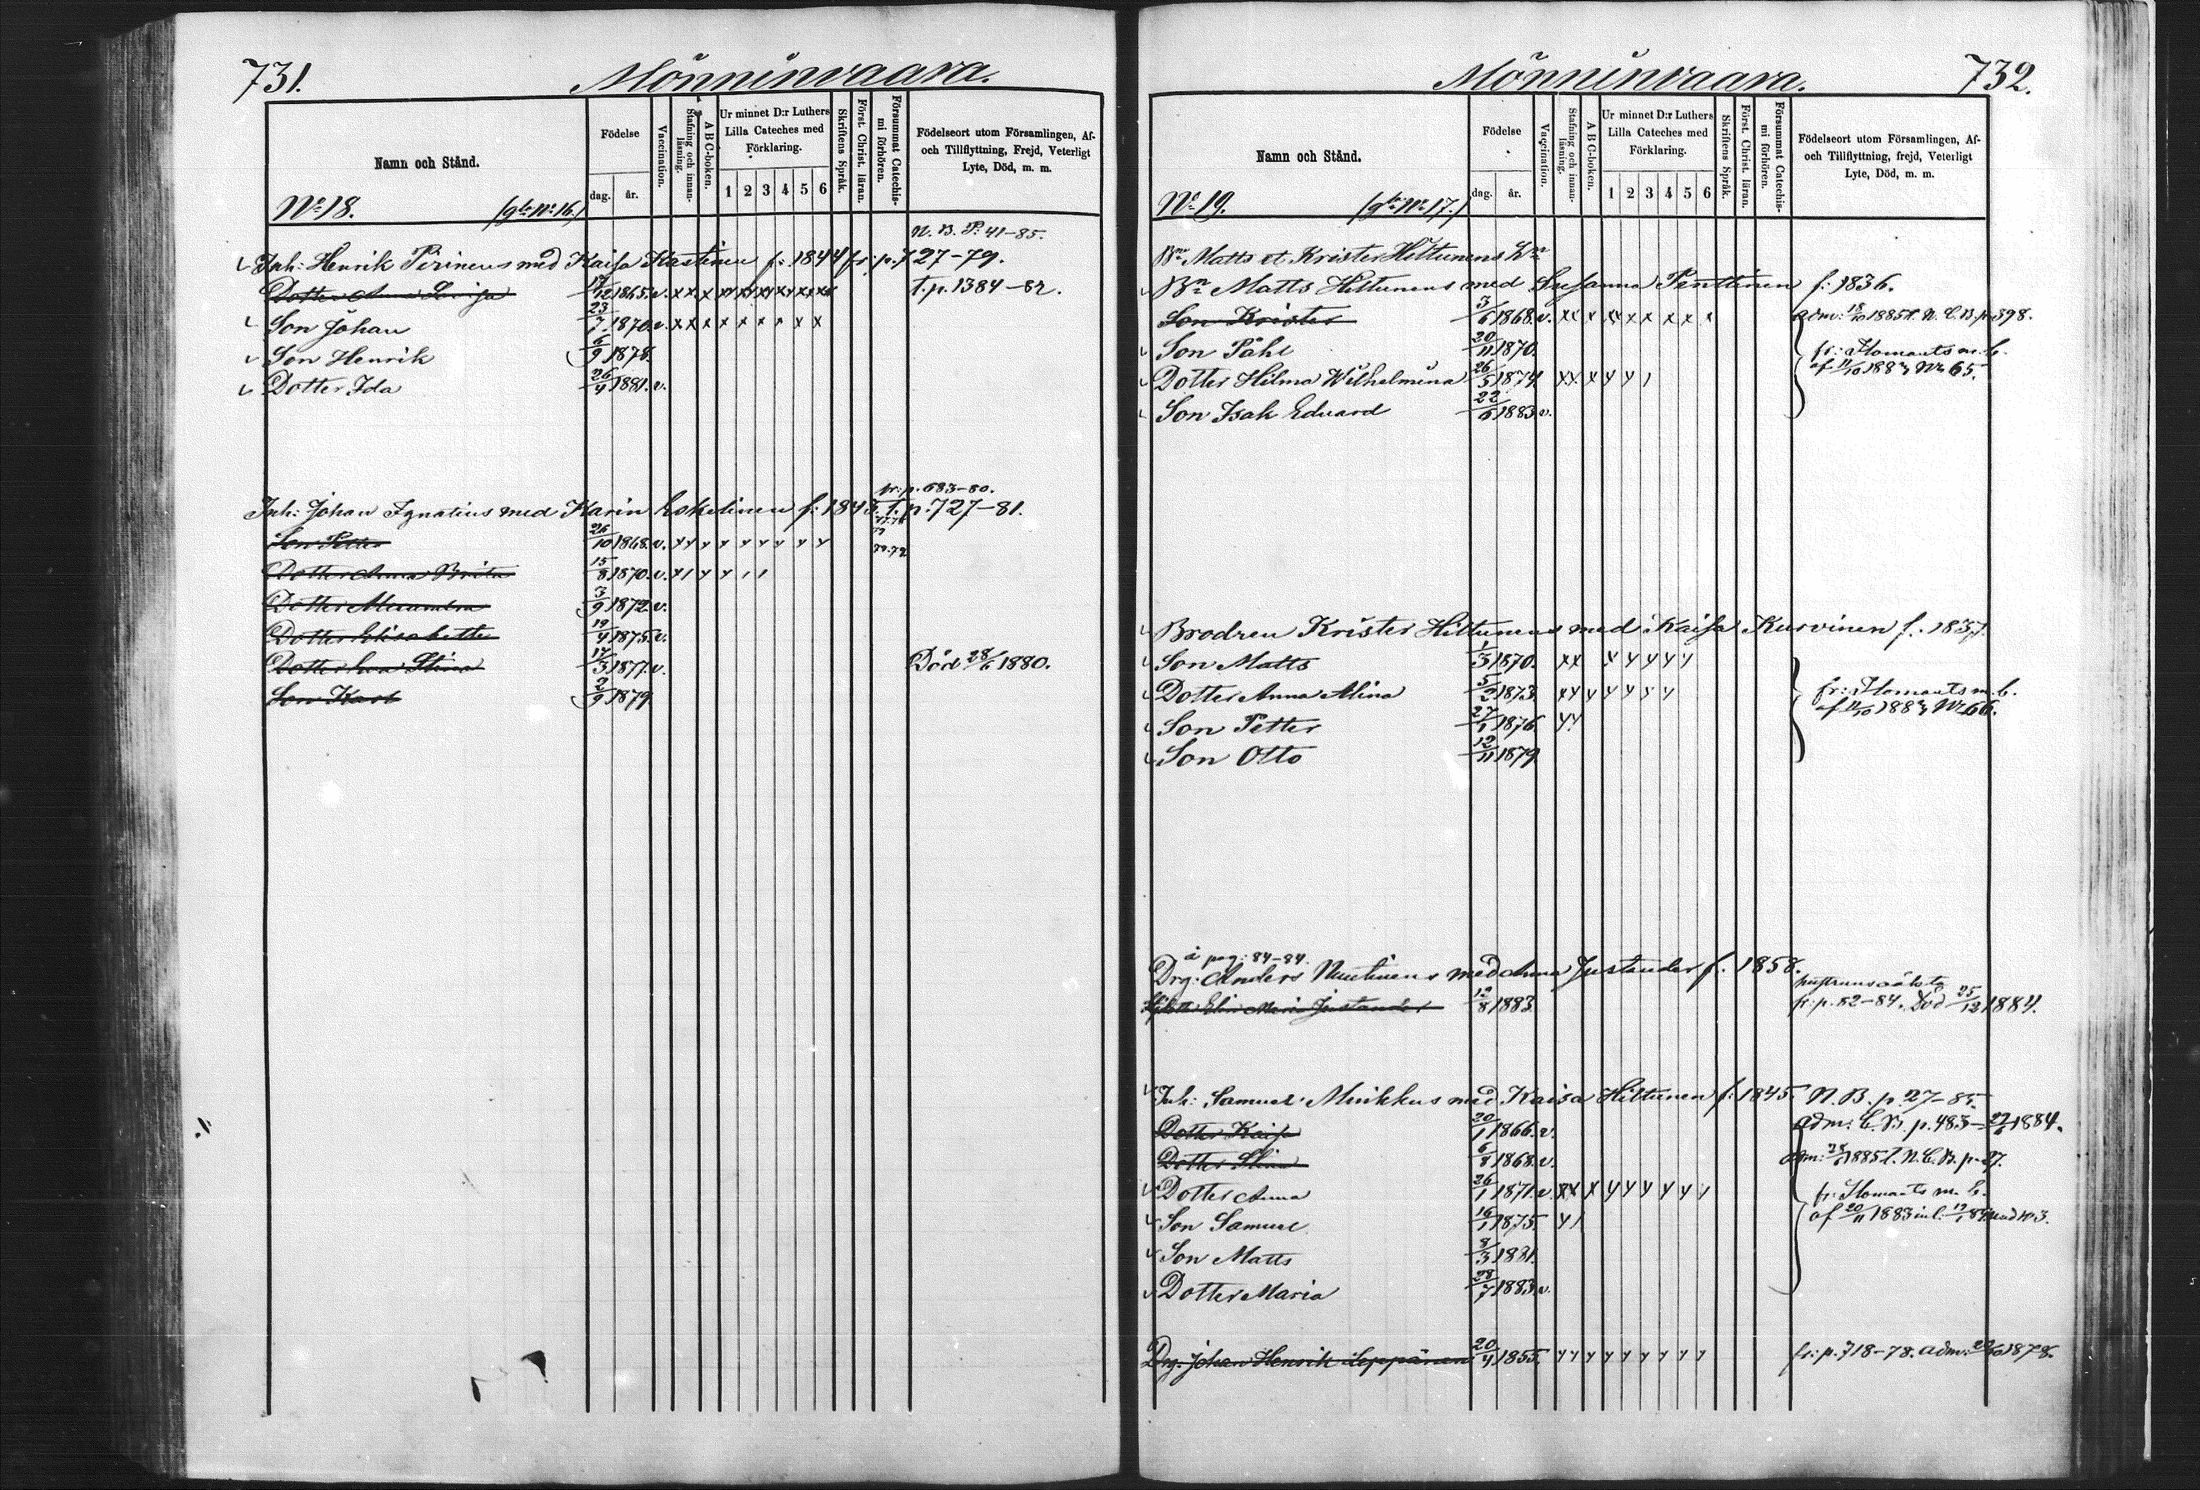 731.
Mönninvaara.
Namn och Stånd.
Födelse
dag. år.
Vaccination.
Stafning och innanläsning.
A B C-boken.
Ur minnet D:r Luthers
Lilla Cateches med
Förklaring.
1 2 3 4 5 6
Skriftens Språk.
Först. Christ. läran.
Försummat Catechismi förhören.
Födelseort utom Församlingen, Af-
och Tillflyttning, Frejd, Veterligt
Lyte, Död, m. m.
No 18. (gla No 16.)
N. B. P. 41-85.
Inh: Henrik Pirinens med Kaisa Kastinen f: 1844 fr: p. 727-79.
Dotter Anna Lovisa 12 1865. v. x x x x x x x x x t. p. 1384-82.
Son Johan 23/7 1870. v. x x x x x x x x x
Son Henrik 6/9 1878.
Dotter Ida 26/4 1881. v.
fr: p. 683-80.
Inh: Johan Ignatius med Karin Eskelinen f: 1843. t. p. 727-81.
Son Petter 26/10 1868. v. x x x x x x x x x
Dotter Anna Brita 15/8 1870. v.
Dotter 3/9 1872. v.
Dotter Elisabeth 19/4 1875. v.
Dotter Eva Stina 17/3 1877. v. Död 28/6 1880.
Son Karl 2/9 1879.
732.
Mönninvaara.
Namn och Stånd.
Födelse
dag. år.
Vaccination.
Stafning och innanläsning.
A B C-boken.
Ur minnet D:r Luthers
Lilla Cateches med
Förklaring.
1 2 3 4 5 6
Skriftens Språk.
Först. Christ. läran.
Försummat Catechismi förhören.
Födelseort utom Församlingen, Af-
och Tillflyttning, frejd, Veterligt
Lyte, Död, m. m.
No 19. (gla No 17.)
Bn Matts et Krister Hiltunens
Bn Matts Hiltunens med Susanna Penttinen f: 1836.
Son Krister 3/6 1868. v. x x x x x x x x adm: 1885 t. N. C. B. p. 398.
Son Påhl 20/11 1870.
Dotter Hilma Wilhelmina 26/5 1874. x x x x x
Son Isak Edvard 22/6 1883. v.
fr: Ilomants m. b.
af 11/10 1883 No 65.
Brodren Krister Hiltunens med Kaisa Kurvinen f: 1837.
Son Matts 1/3 1870. x x x x x x x
Dotter Anna Alina 5/2 1873. x x x x x x x
Son Petter 27/1 1876. x x
Son Otto 12/11 1879.
fr: Ilomants m. b.
af 11/10 1883 No 66.
å pag: 84-84.
Drg: Anders Nuutinens med Anna Justander f: 1858.
Elin Maria Justander 12/8 1883.
fr: p. 82-84. Död 25/12 1884.
Inh: Samuel Muikkus med Kaisa Hiltunen f: 1845. N. B. p. 27-85.
Dotter Kaisa 20/1 1866. v. adm: C. B. p. 483- 1884.
Dotter Stina 6/8 1868. v. adm: 1885 t. N. C. B. p. 27.
Dotter Anna 26/1 1871. v. x x x x x x x x
Son Samuel 16/1 1875.
Son Matts 8/3 1881.
Dotter Maria 28/7 1883. v.
fr: Ilomants m. b.
af 20/11 1883 inl:
Drg. Johan Henrik Leppänen 20/4 1855. x x x x x x x x x fr: p. 718-78. adm: 1878.